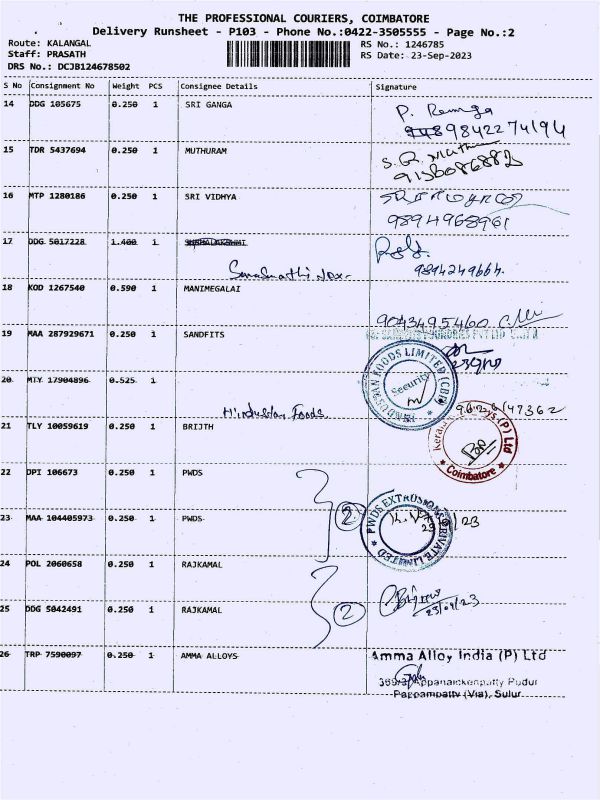 THE PROFESSIONAL COURIERS, COIMBATORE
Delivery Runsheet - P103 - Phone No.:0422-3505555 - Page No.:2
Route: KALANGAL
RS No.: 1246785
Staff: PRASATH
RS Date: 23-Sep-2023
DRS No.: DCJB124678502
S No Consignment No Weight PCS Consignee Details Signature
14 DDG 105675 0.250 1 SRI GANGA
9842274194
15 TDR 5437694 0.250 1 MUTHURAM
16 MTP 1280186 0.250 1 SRI VIDHYA
9894968961
17 DDG 5017228 1.400 1
9894249664.
18 KOD 1267540 0.590 1 MANIMEGALAI
9043495460
19 MAA 287929671 0.250 1 SANDFITS
HINDUSTAN FOODS LIMITED (CBE)
Security
20 MTY 17904896 0.525 1
Hindustan Foods
21 TLY 10059619 0.250 1 BRIJTH
Kerala (P) Ltd
Coimbatore
22 DPI 106673 0.250 1 PWDS
2
PWDS EXTRUSIONS PRIVATE LIMITED
23 MAA 104405973 0.250 1 PWDS
24 POL 2060658 0.250 1 RAJKAMAL
2
25 DDG 5042491 0.250 1 RAJKAMAL
23/09/23
26 TRP 7590097 0.250 1 AMMA ALLOYS
Amma Alloy India (P) Ltd
Appanaickenpatty Pudur
Pappampatty (Via), Sulur